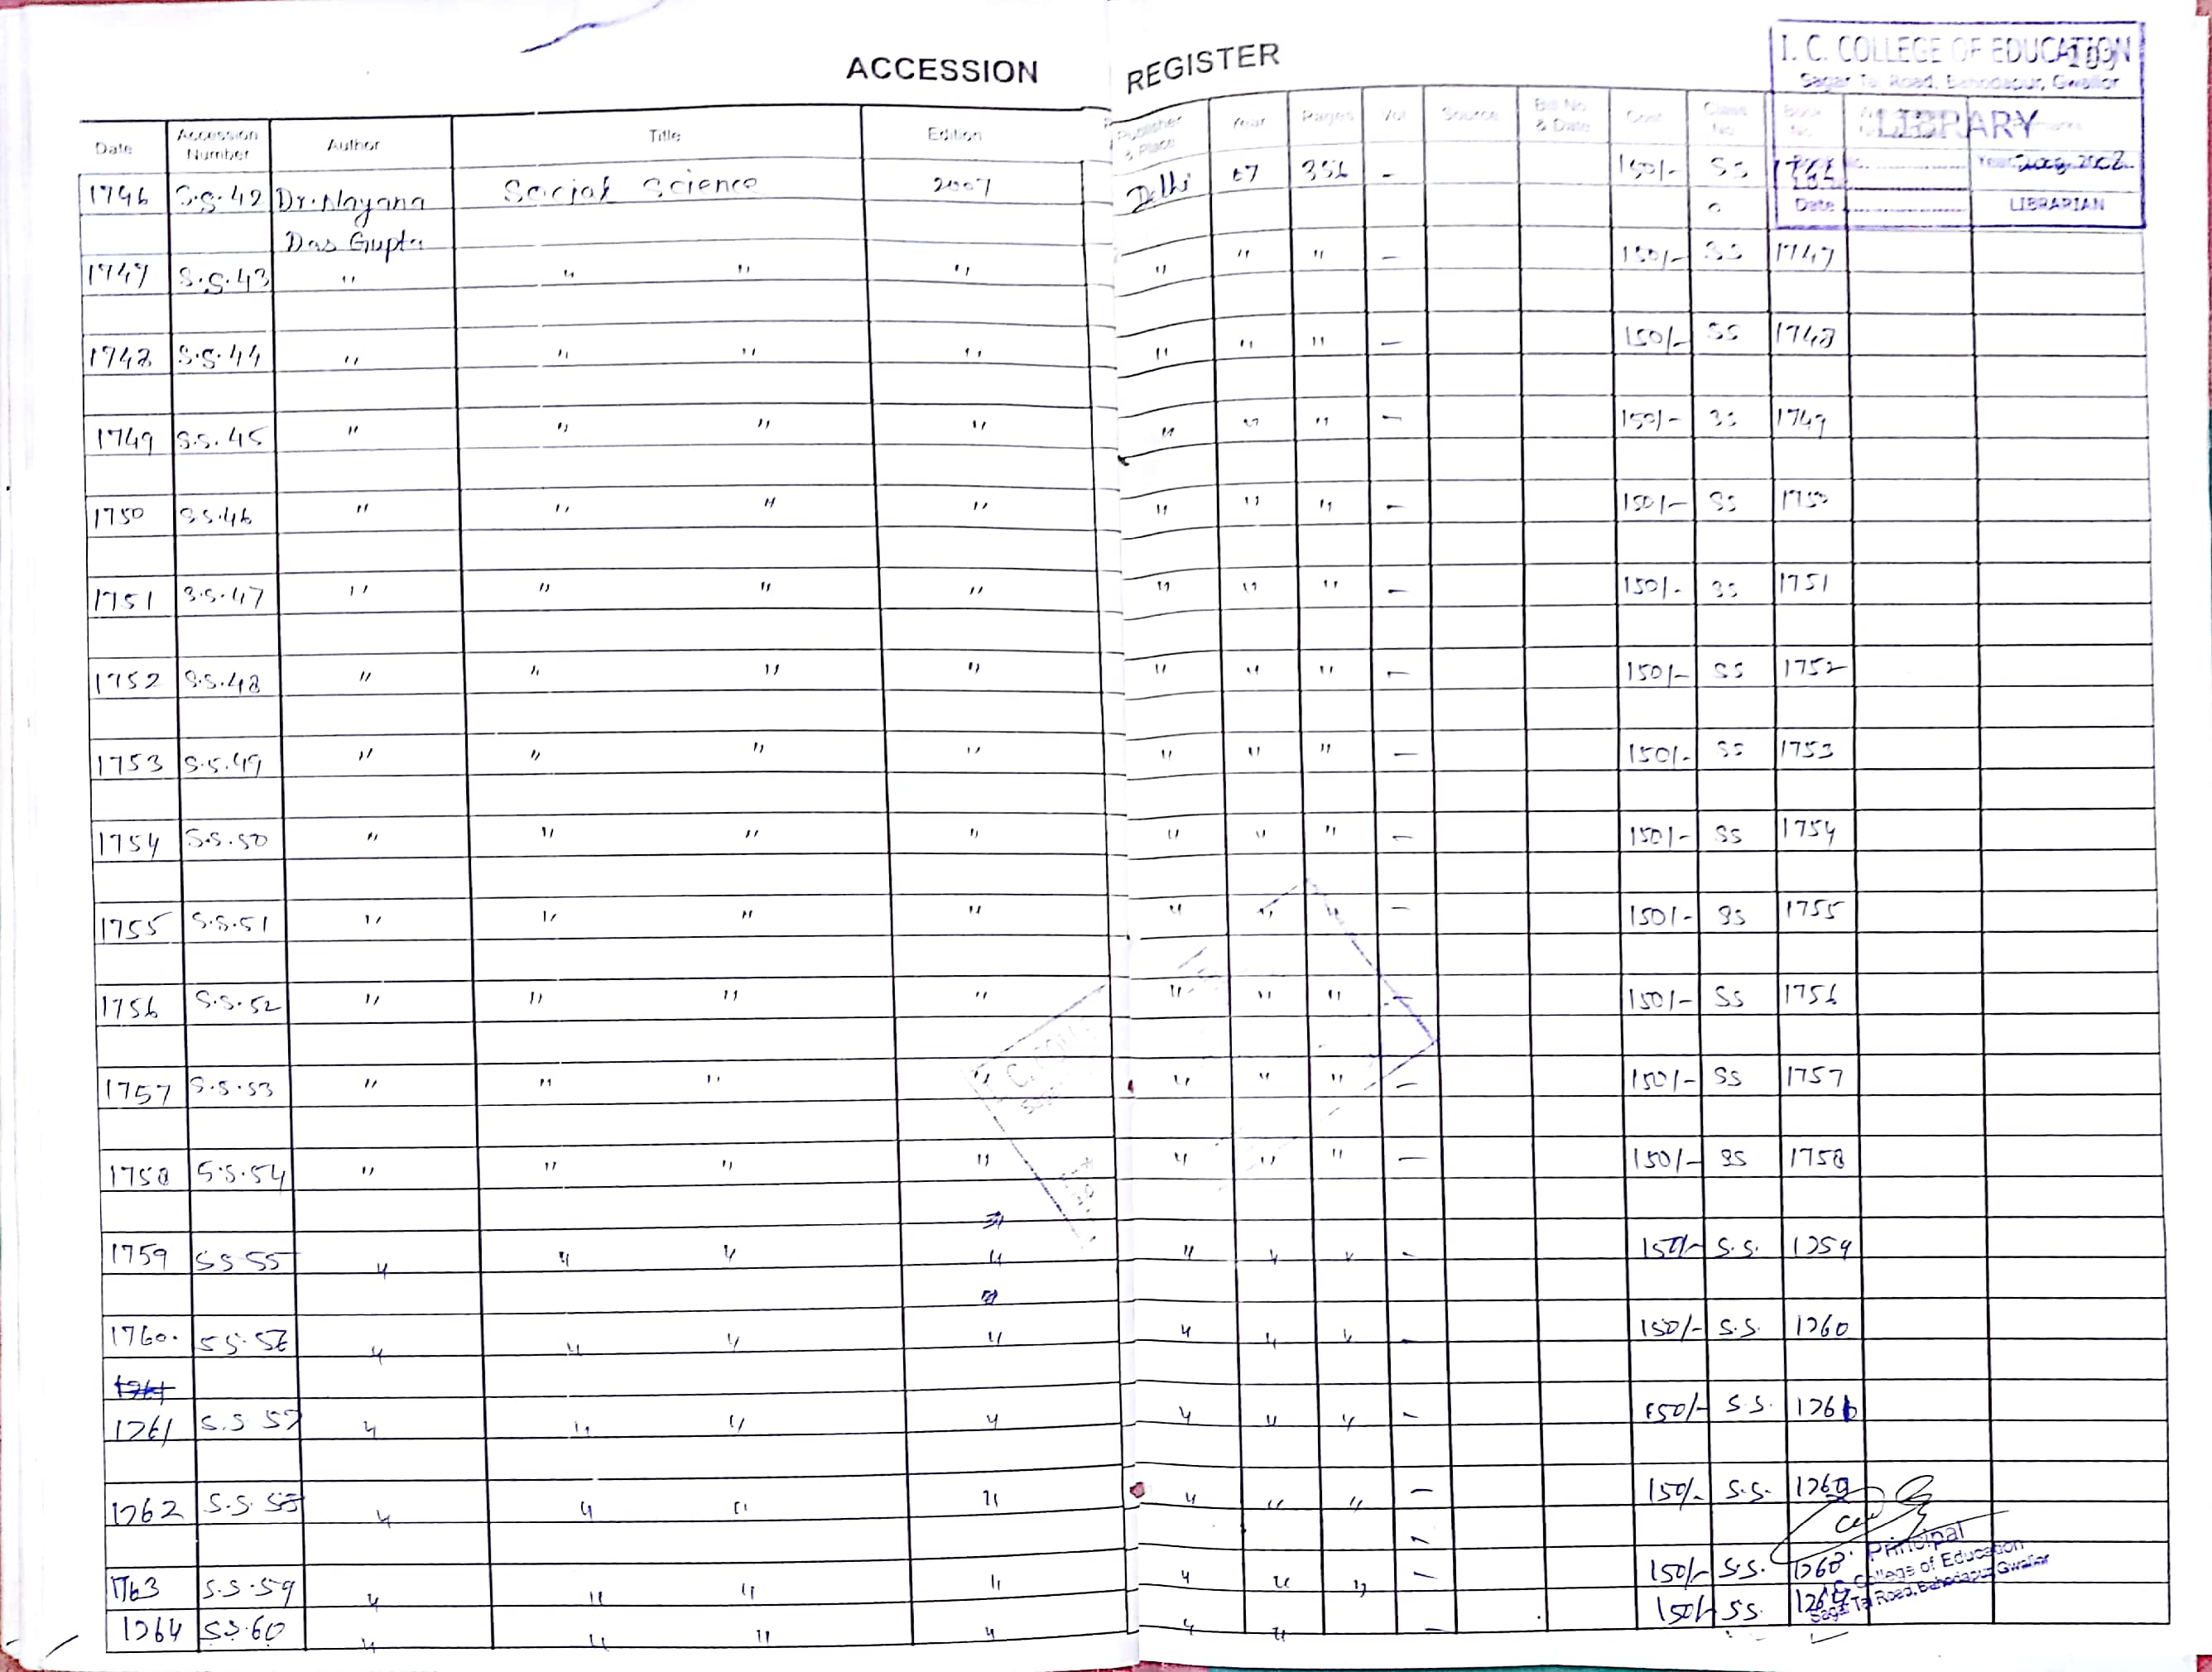 ACCESSION REGISTER
I. C. COLLEGE OF EDUCATION
Sagar Tal Road, Bahodapur, Gwalior
LIBRARY
Date LIBRARIAN
Date Accession Number Author Title Edition Publisher & Place Year Pages Vol Source Bill No & Date Cost Class No Book No
1746 S.S.42 Dr. Nayana Social Science 2007 Delhi 07 356 - 150/- SS
Das Gupta
1747 S.S.43 " " " " " " " - 150/- SS 1747
1748 S.S.44 " " " " " " " - 150/- SS 1748
1749 S.S.45 " " " " " " " - 150/- SS 1749
1750 S.S.46 " " " " " " " - 150/- SS 1750
1751 S.S.47 " " " " " " " - 150/- SS 1751
1752 S.S.48 " " " " " " " - 150/- SS 1752
1753 S.S.49 " " " " " " " - 150/- SS 1753
1754 S.S.50 " " " " " " " - 150/- SS 1754
1755 S.S.51 " " " " " " " - 150/- SS 1755
1756 S.S.52 " " " " " " " - 150/- SS 1756
1757 S.S.53 " " " " " " " - 150/- SS 1757
1758 S.S.54 " " " " " " " - 150/- SS 1758
1759 S.S.55 " " " " " " " - 150/- S.S. 1759
1760. S.S.56 " " " " " " " - 150/- S.S. 1760
1761 S.S 57 " " " " " " " - 150/- S.S. 1761
1762 S.S. 58 " " " " " " " - 150/- S.S.
1763 S.S.59 " " " " " " " - 150/- S.S. 1763
1764 S.S.60 " " " " " " - 150/- S.S.
Principal
College of Education
Sagar Tal Road, Bahodapur Gwalior